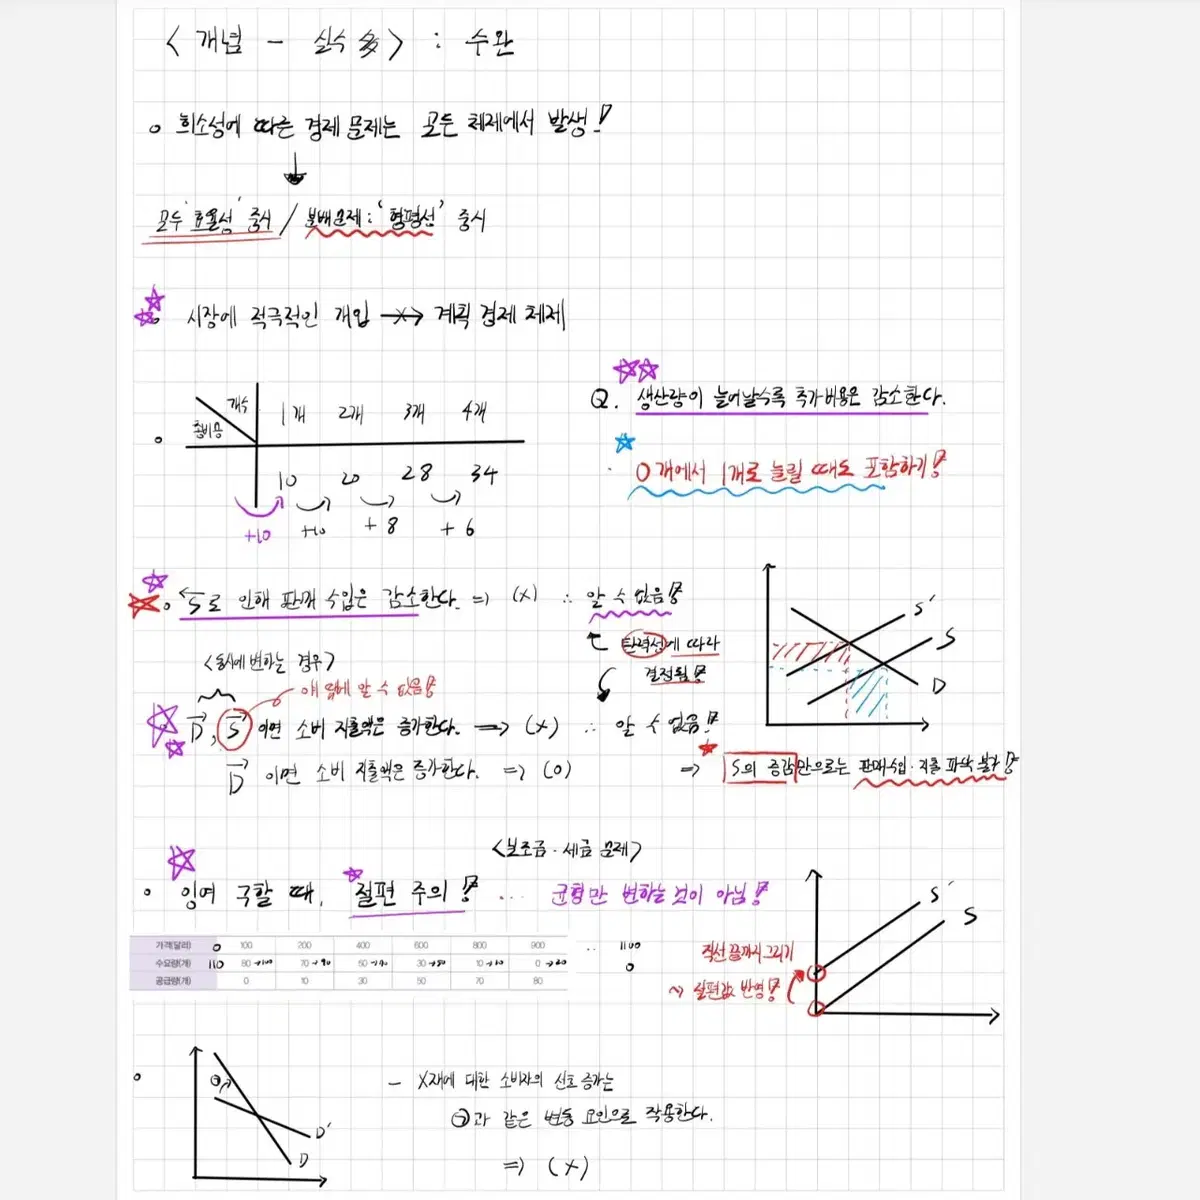 <개념 - 실수 多> : 수완
희소성에 따른 경제 문제는 모든 체제에서 발생!
모두 '효율성' 중시 / 분배문제 : '형평성' 중시
시장에 적극적인 개입 → 계획 경제 체제
개수 1개 2개 3개 4개
총비용
10 20 28 34
+10 +10 +8 +6
Q. 생산량이 늘어날수록 추가비용은 감소한다.
0개에서 1개로 늘릴 때도 포함하기!
S로 인해 판매 수입은 감소한다. ⇒ (X) ∴ 알 수 없음!
탄력성에 따라
결정됨!
<동시에 변하는 경우>
얘 땜에 알 수 없음!
D, S 이면 소비 지출액은 증가한다. ⇒ (X) ∴ 알 수 없음!
D 이면 소비 지출액은 증가한다. ⇒ (O)
⇒ S의 증감만으로는 판매수입·지출 파악 불가!
S'
S
D
<보조금·세금 문제>
잉여 구할 때, 절편 주의! ... 균형만 변하는 것이 아님!
가격(달러) 0 100 200 400 600 800 900 .. 1100
수요량(개) 110 80→100 70→90 50→70 30→50 10→30 0→20 0
공급량(개) 0 10 30 50 70 80
직선 끝까지 그리기
~> 절편값 반영!
S'
S
㉠
D'
D
- X재에 대한 소비자의 선호 증가는
㉠과 같은 변동 요인으로 작용한다.
⇒ (X)